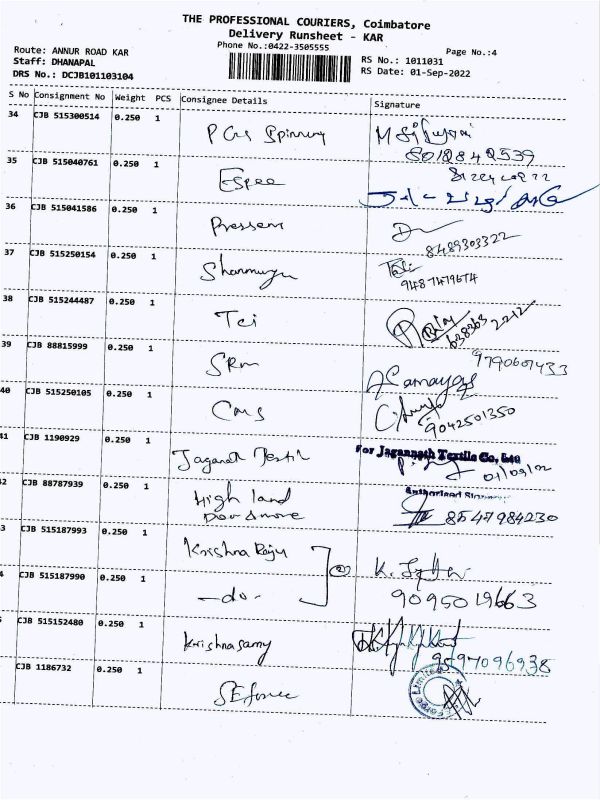 THE PROFESSIONAL COURIERS, Coimbatore
Delivery Runsheet - KAR
Phone No.:0422-3505555
Page No.:4
Route: ANNUR ROAD KAR
Staff: DHANAPAL
DRS No.: DCJB101103104
RS No.: 1011031
RS Date: 01-Sep-2022
S No Consignment No Weight PCS Consignee Details Signature
34 CJB 515300514 0.250 1 Spinning
8012842539
35 CJB 515040761 0.250 1 Espee
36 CJB 515041586 0.250 1 Pressem
8489303322
37 CJB 515250154 0.250 1 Shanmuga
9487419674
38 CJB 515244487 0.250 1 Tci
638363 2212
39 CJB 88815999 0.250 1 SRM
9790607433
40 CJB 515250105 0.250 1 CMS
9042501350
41 CJB 1190929 0.250 1 Jaganath Textil
For Jagannath Textile Co, Ltd
01/09/22
42 CJB 88787939 0.250 1 High land
Authorised
8547984230
3 CJB 515187993 0.250 1 Krishna Raju
2 K.
4 CJB 515187990 0.250 1 -do-
9095019663
CJB 515152480 0.250 1 Krishnasamy
9597096938
CJB 1186732 0.250 1
Limited